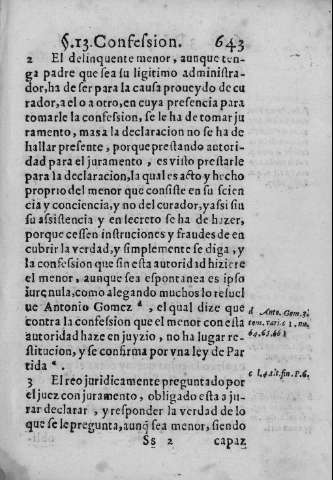 §.13. Confession. 643
2 El delinquente menor, aunque ten-
ga padre que sea su ligitimo administra-
dor, ha de ser para la causa proueydo de cu
rador, a el o a otro, en cuya presencia para
tomarle la confession, se le ha de tomar ju
ramento, mas a la declaracion no se ha de
hallar presente, porque prestando autori-
dad para el juramento, es visto prestarle
para la declaracion, la qual es acto y hecho
proprio del menor que consiste en su scien
cia y conciencia, y no del curador, y assi sin
su assistencia y en secreto se ha de hazer,
porque cessen instruciones y fraudes de en
cubrir la verdad, y simplemente se diga, y
la confession que sin esta autoridad hiziere
el menor, aunque sea espontanea es ipso
iure nula, como alegando muchos lo resuel
ue Antonio Gomez d, el qual dize que
contra la confession que el menor con esta
autoridad haze en juyzio, no ha lugar re-
stitucion, y se confirma por vna ley de Par
tida e.
d Anto. Gom. 3.
tom. vari. c 1. nu.
64. 65. 66
e l. 4. tit. fin. P. 6.
3 El reo juridicamente preguntado por
el juez con juramento, obligado esta a ju-
rar declarar, y responder la verdad de lo
que se le pregunta, aunq̃ sea menor, siendo
Ss 2 capaz